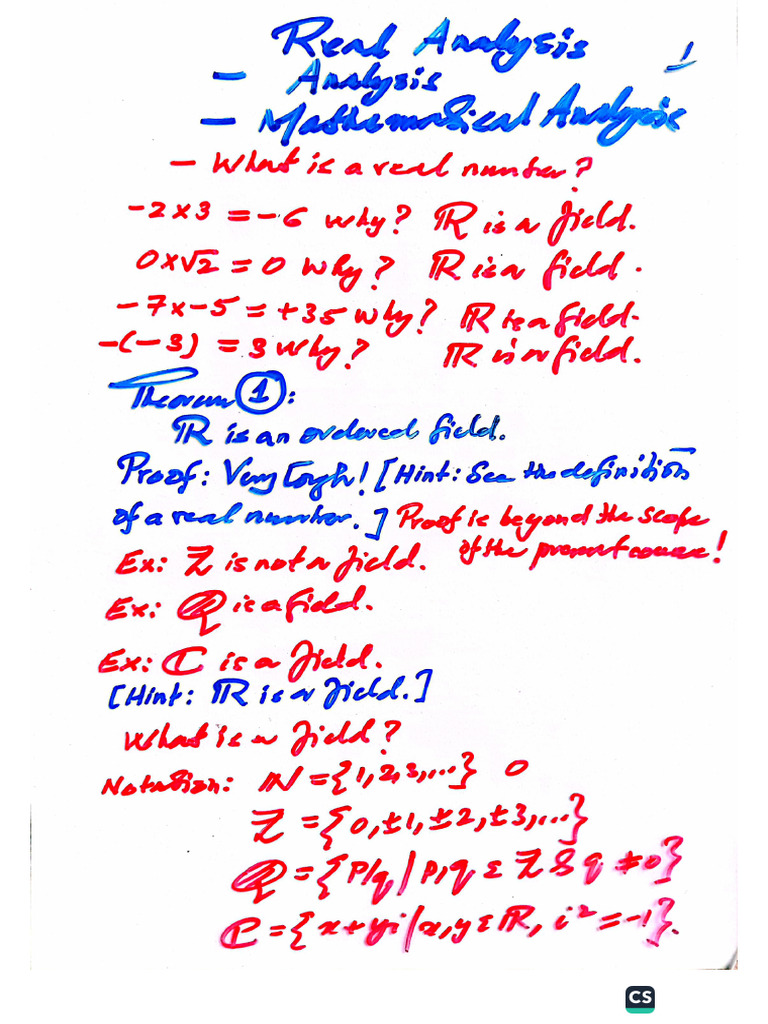 Real Analysis
1
- Analysis
- Mathematical Analysis
- What is a real number?
-2 x 3 = -6 why? ℝ is a field.
0 x √2 = 0 why? ℝ is a field.
-7 x -5 = +35 why? ℝ is a field.
-(-3) = 3 why? ℝ is a field.
Theorem ①:
ℝ is an ordered field.
Proof: Very Tough! [Hint: See the definition
of a real number.] Proof is beyond the scope
of the present course!
Ex: ℤ is not a field.
Ex: ℚ is a field.
Ex: ℂ is a field.
[Hint: ℝ is a field.]
What is a field?
Notation: ℕ = {1, 2, 3, ...} 0
ℤ = {0, ±1, ±2, ±3, ...}
ℚ = {p/q | p, q ε ℤ & q ≠ 0}
ℂ = {x + yi | x, y ε ℝ, i² = -1}.
CS